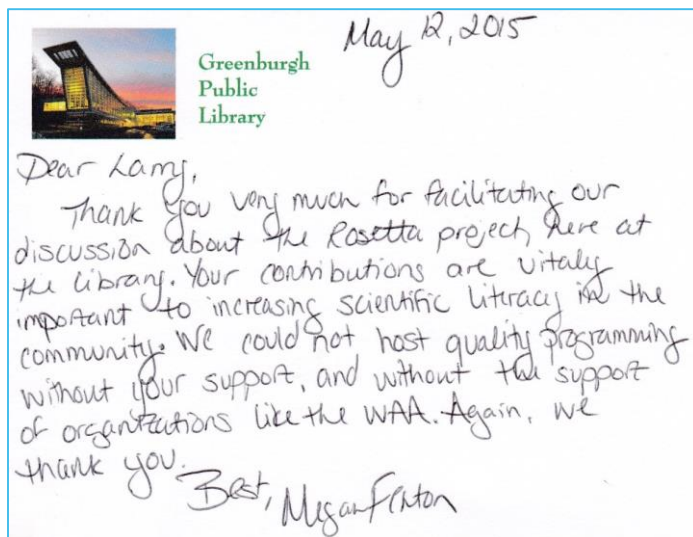 May 12, 2015
Greenburgh
Public
Library
Dear Larry,
Thank you very much for facilitating our
discussion about the Rosetta project, here at
the library. Your contributions are vitaly
important to increasing scientific literacy in the
community. We could not host quality programming
without your support, and without the support
of organizations like the WAA. Again, we
thank you.
Best, Megan Fenton